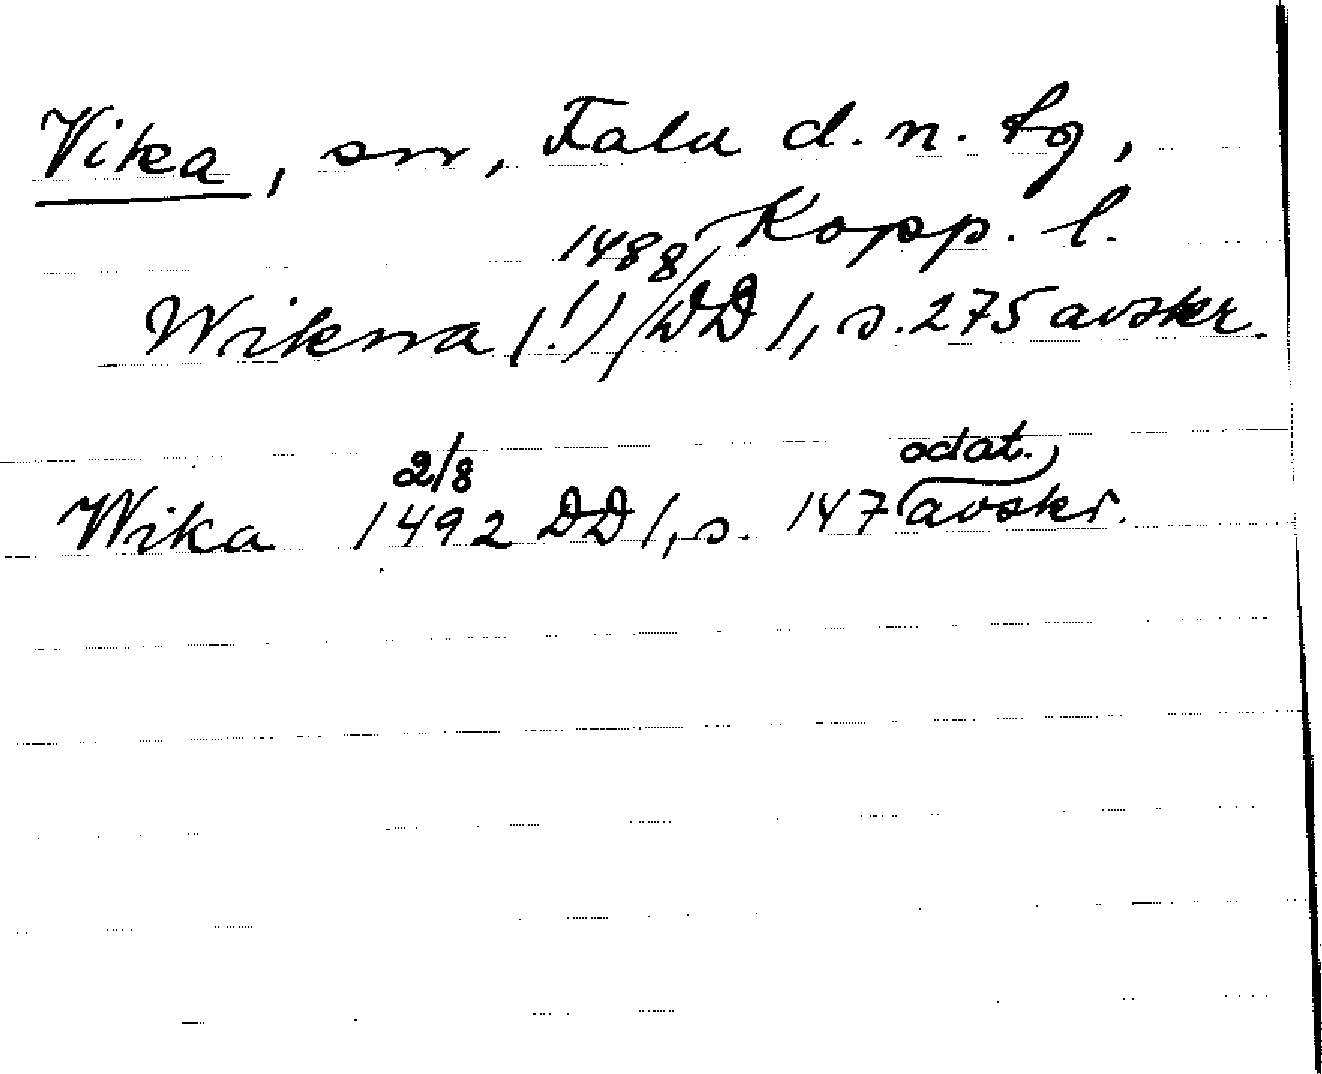 Vika, sn, Falu d. n. tg,
Kopp. l.
Wikna (!) 1488 DD 1, s. 275 avskr.
Wika 2/8 1492 DD 1, s. 147 odat. avskr.